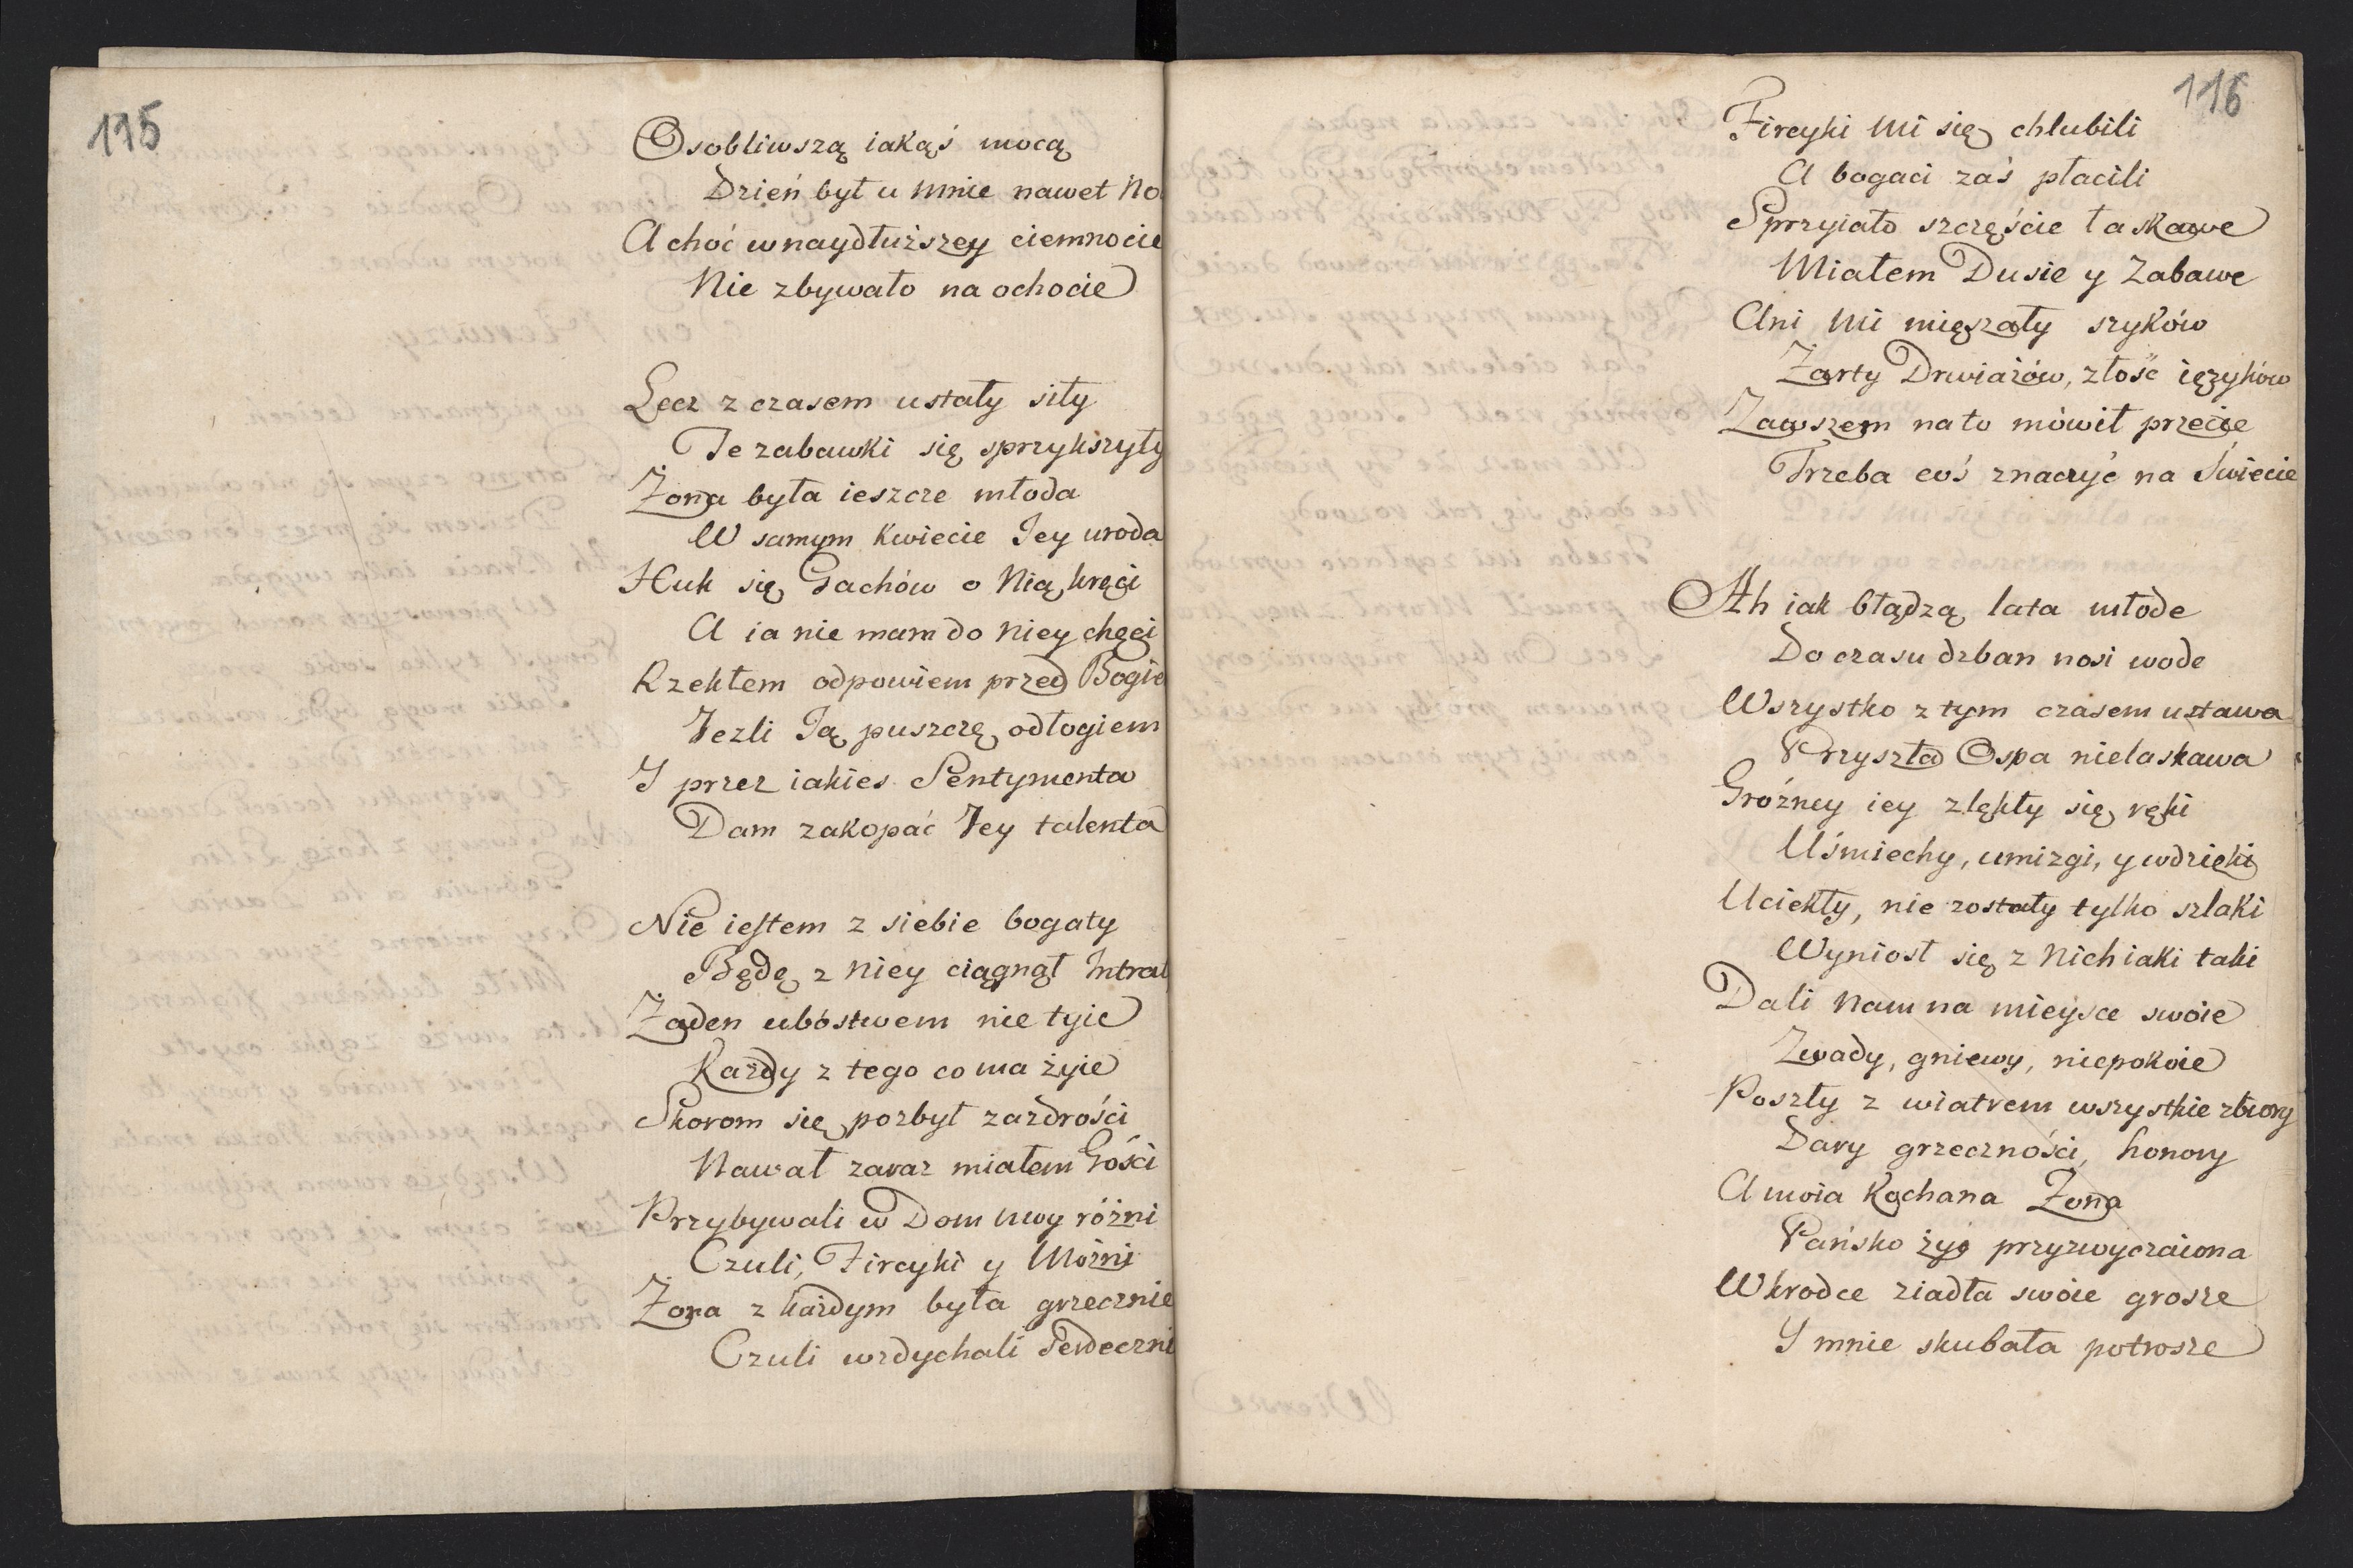 115
Osobliwszą iakąś mocą
Dzień był u mnie nawet No
A choć w naydłuższey ciemnocie
Nie zbywało na ochocie
Lecz z czasem ustały siły
Te zabawki się sprzykszyły
Żona była ieszcze młoda
W samym kwiecie Jey uroda
Huk się Gachów o Nią kręci
A ia nie mam do Niey chęci
Rzekłem odpowiem przed Bogie
Jezli Ją puszczę odłogiem
I przez iakies Sentymenta
Dam zakopać Jey talenta
Nie iestem z siebie bogaty
Będę z Niey ciągnął Intrat
Żaden ubóstwem nie tyie
Każdy z tego co ma żyie
Skorom się pozbył zazdrości
Nawał zaraz miałem Gości
Przybywali w Dom Mwy różni
Czuli, Fircyki y Możni
Żona z każdym była grzecznie
Czuli wzdychali Serdeczni
116
Fircyki Mi się chlubili
A bogaci zaś płacili
Sprzyiało szczęście łaskawe
Miałem Dusie y Zabawe
Ani Mi mięszały szyków
Żarty Drwiażów, złość ięzyków
Zawszem na to mówił przecie
Trzeba coś znaczyć na Świecie
Ah iak błądzą lata młode
Do czasu dzban nosi wode
Wszystko z tym czasem ustawa
Przyszła Ospa nielaskawa
Gróźney iey zlękły się ręki
Uśmiechy, umizgi, y wdzięki
Uciekły, nie zostały tylko szlaki
Wyniosł się z Nich iaki taki
Dali Nam na mieysce swoie
Zwady, gniewy, niepokoie
Poszły z wiatrem wszystkie zbiory
Dary grzeczności, honory
A moia Kochana Żona
Pańsko żyć przyzwyczaiona
Wkrodce ziadła swoie grosze
Y mnie skubała potrosze